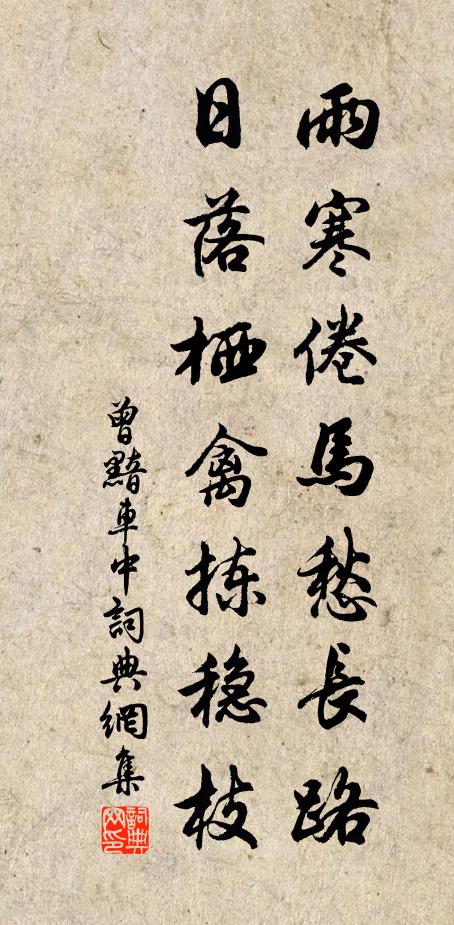 雨寒倦馬愁長路
日落栖禽拣稳枝
曾黯車中詞典網集
詞典網印